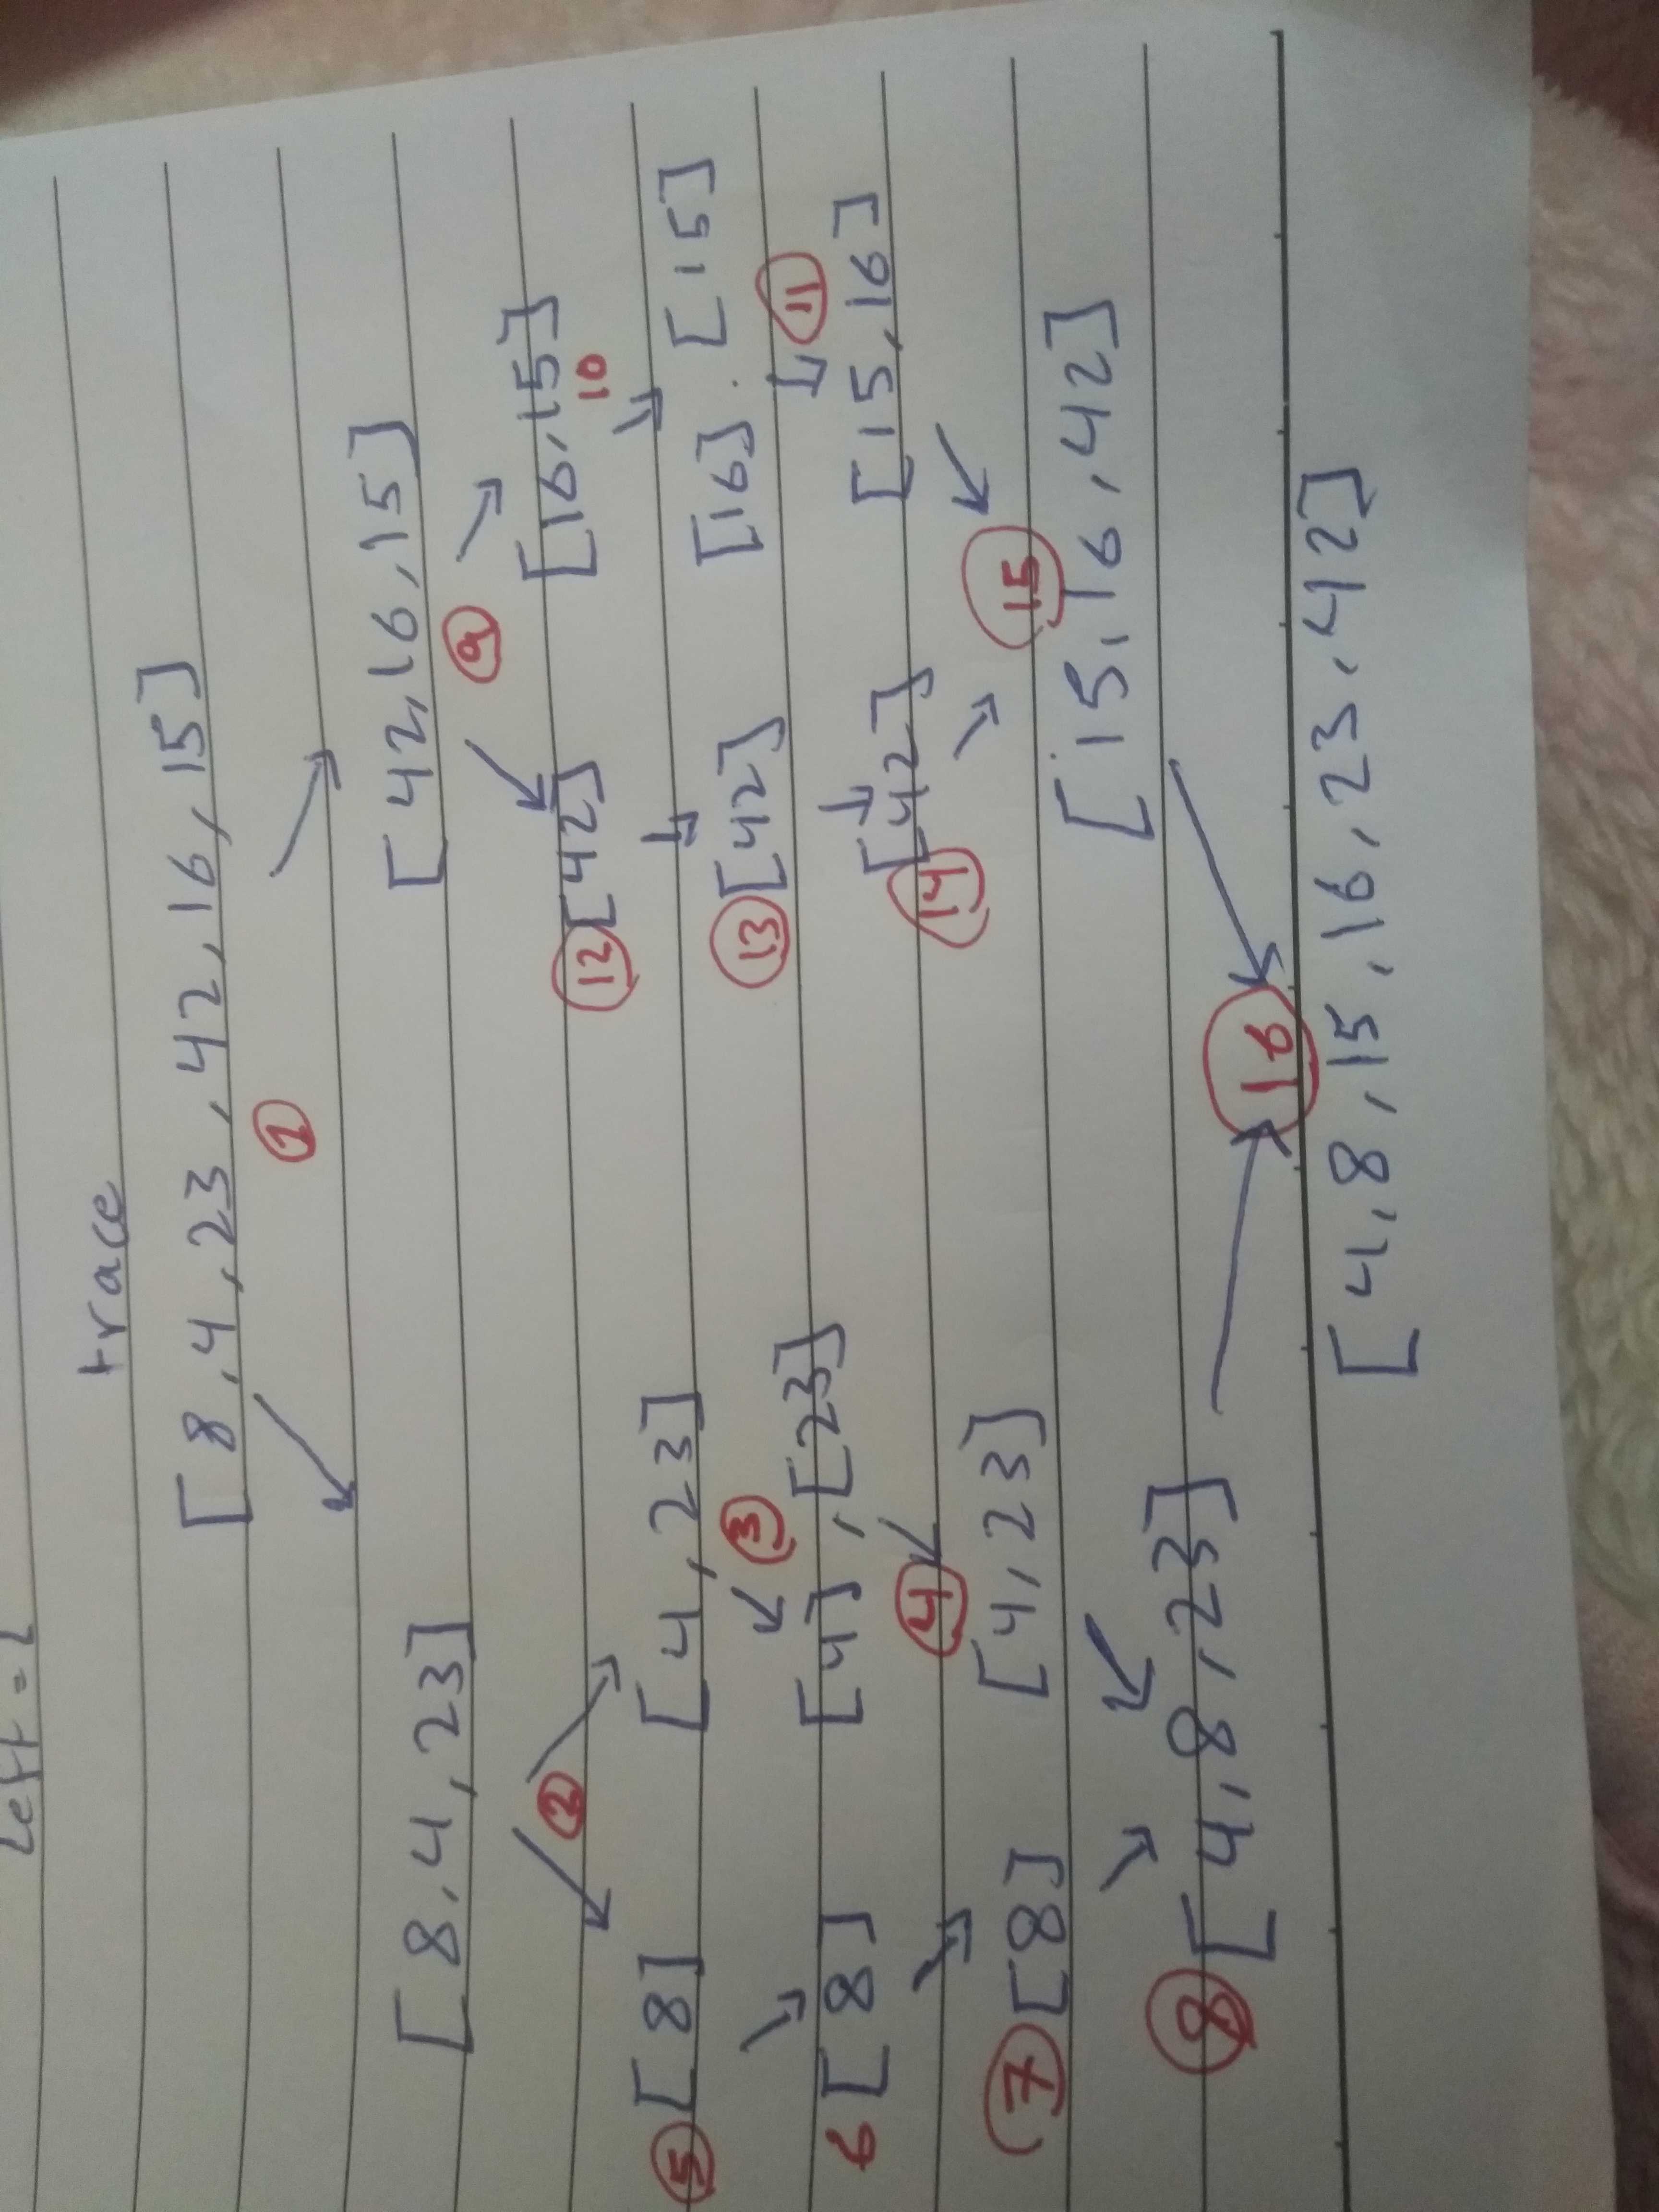 Left = L
trace
[8,4,23,42,16,15]
1
[8,4,23] [42,16,15]
2 9
5 [8] [4,23] 12 [42] [16,15]
3 10
6 [8] [4],[23] 13 [42] [16] . [15]
4 11
7 [8] [4,23] 14 [42] [15,16]
15
8 [4,8,23] [15,16,42]
16
[4,8,15,16,23,42]